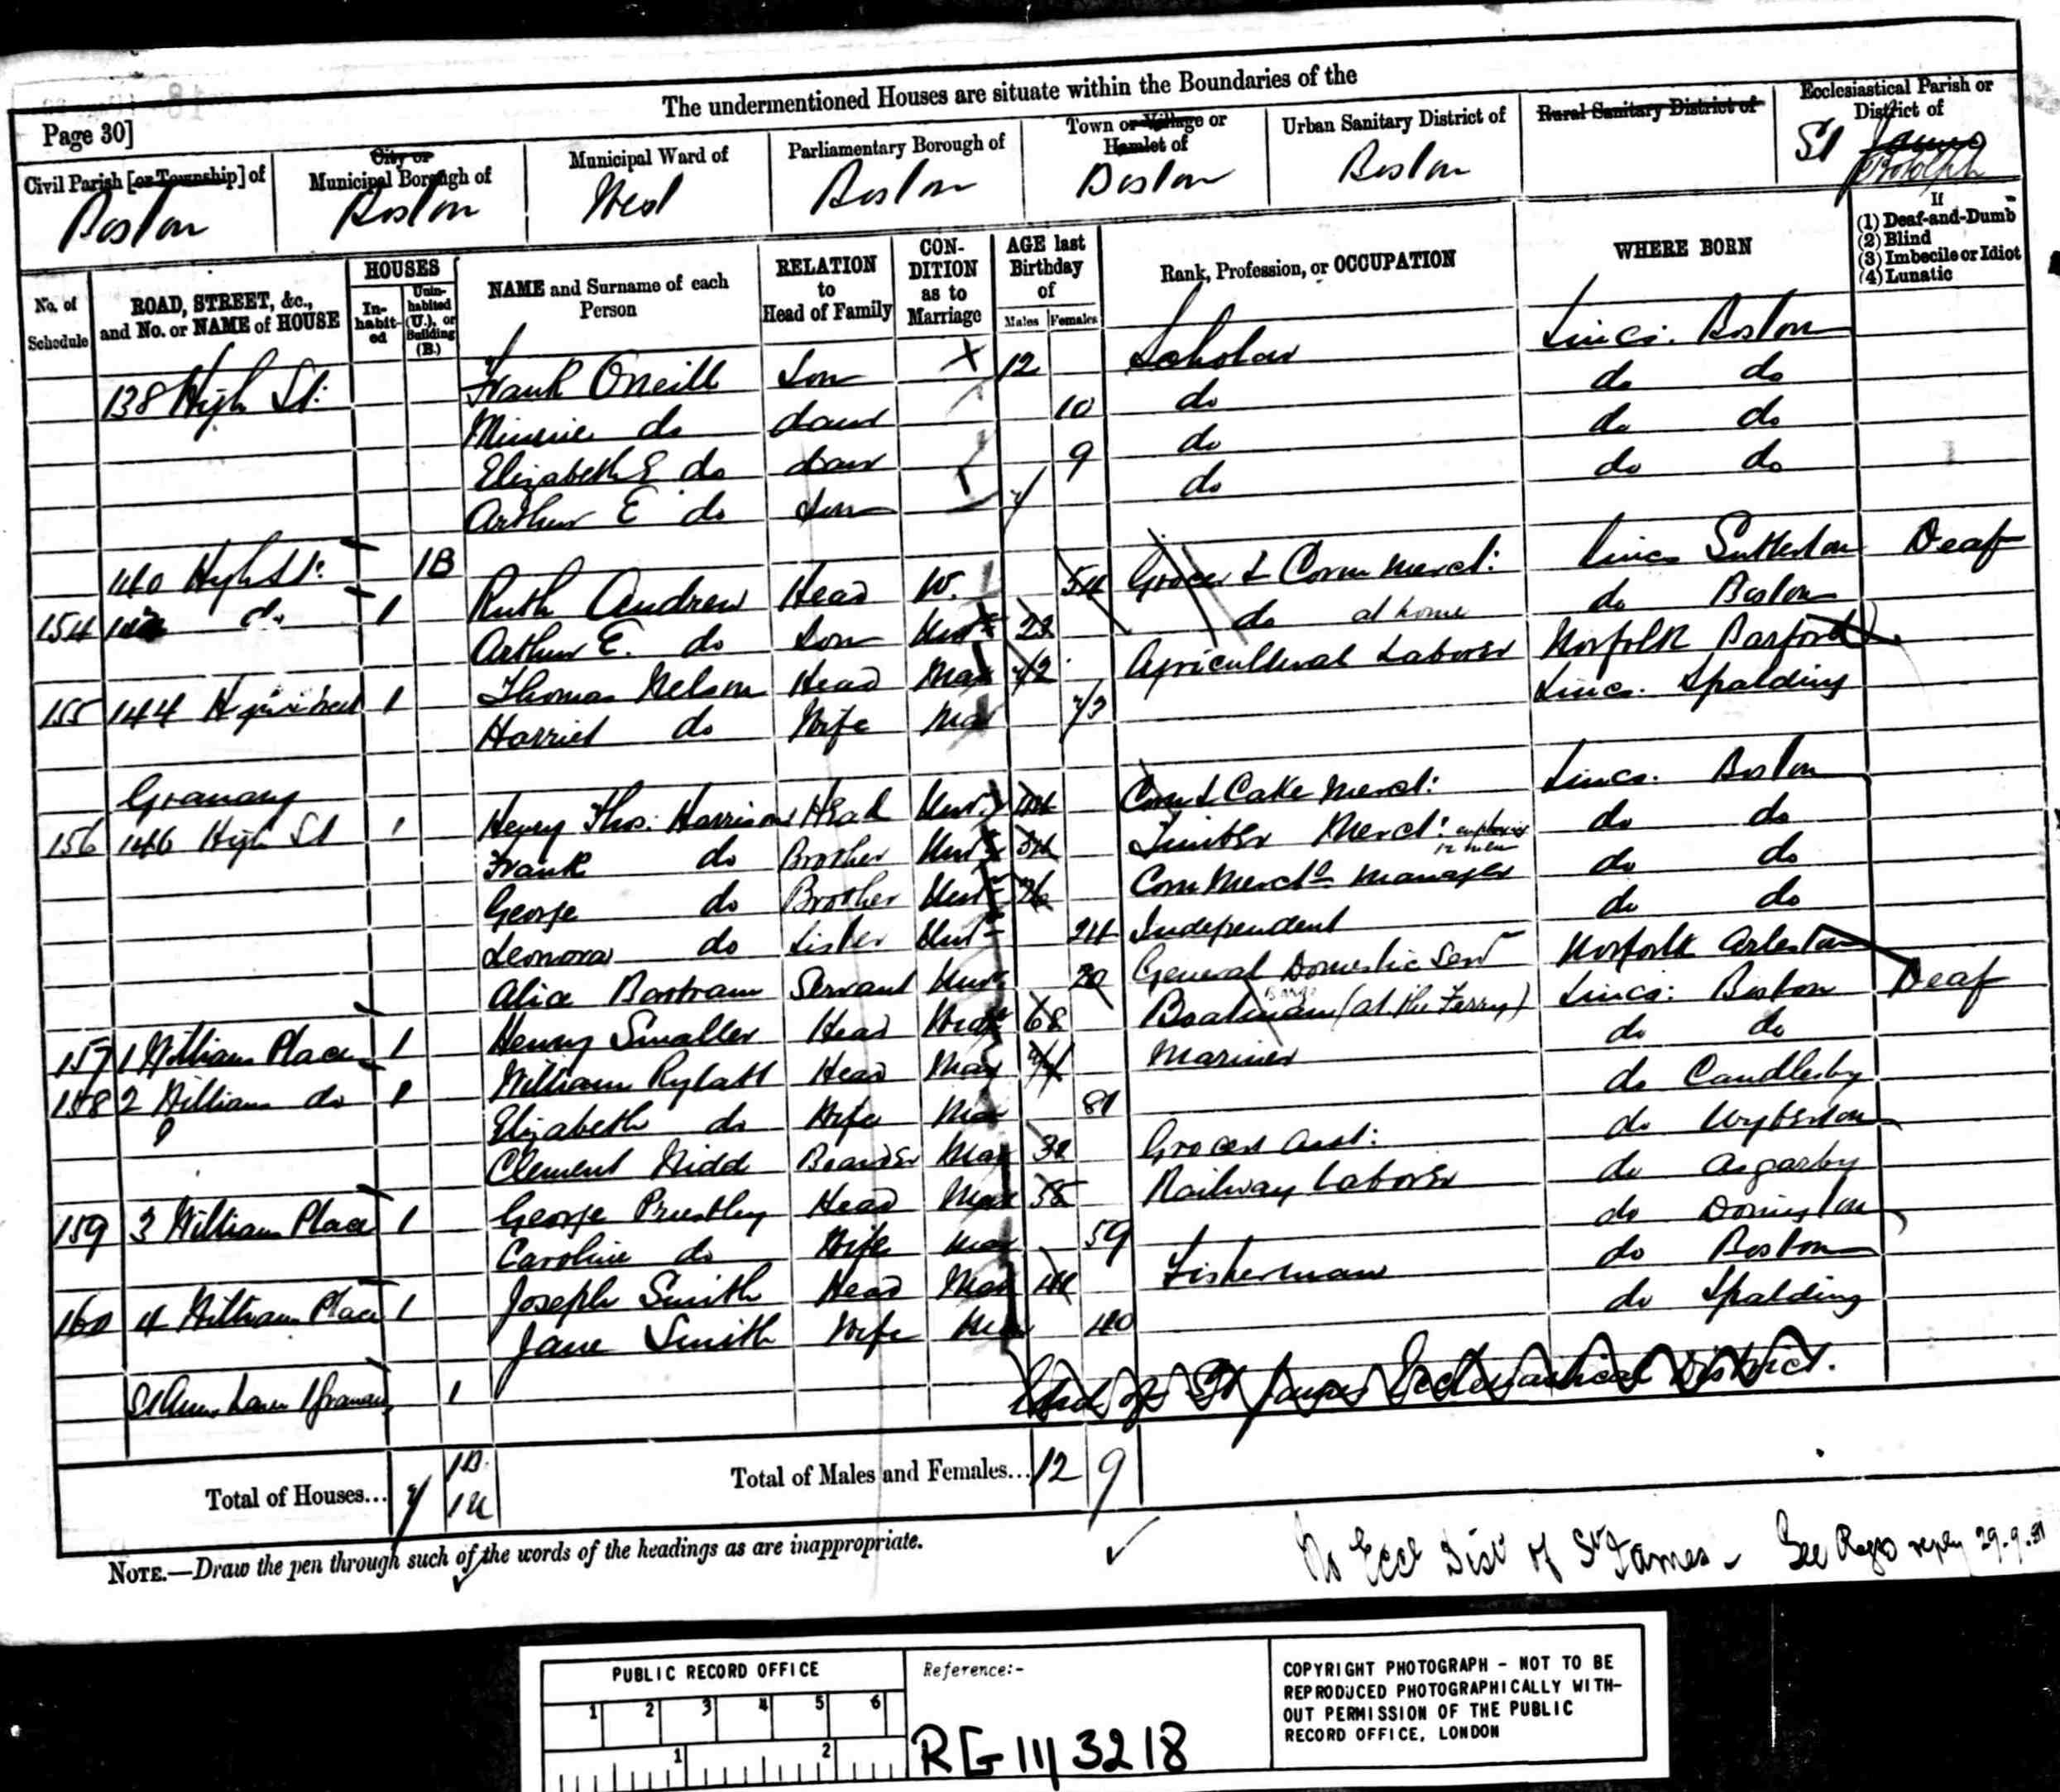 The undermentioned Houses are situate within the Boundaries of the
Page 30]
Civil Parish [or Township] of
Boston
City or
Municipal Borough of
Boston
Municipal Ward of
West
Parliamentary Borough of
Boston
Town or Village or
Hamlet of
Boston
Urban Sanitary District of
Boston
Rural Sanitary District of
Ecclesiastical Parish or
District of
St James
Botolph
No. of
Schedule
ROAD, STREET, &c.,
and No. or NAME of HOUSE
HOUSES
In-
habit-
ed
Unin-
habited
(U.), or
Building
(B.)
NAME and Surname of each
Person
RELATION
to
Head of Family
CON-
DITION
as to
Marriage
AGE last
Birthday
of
Males Females
Rank, Profession, or OCCUPATION
WHERE BORN
If
(1) Deaf-and-Dumb
(2) Blind
(3) Imbecile or Idiot
(4) Lunatic
138 High St: Frank Oneill Son 12 Scholar Lincs: Boston
Minnie do daur 10 do do do
Elizabeth E do daur 9 do do do
Arthur E do Son 7 do do do
140 High St: 1B
154 do 1 Ruth Andrew Head W. 54 Grocer & Corn Merct: Lincs Sutterton Deaf
Arthur E. do Son Unm 22 do at home do Boston
155 144 High Street 1 Thomas Nelson Head Mar 72 Agricultural Laborer Norfolk Barford
Harriet do Wife Mar 73 Lincs. Spalding
Granary
156 146 High St 1 Henry Thos: Harrison Head Unm Corn & Cake Merct: Lincs. Boston
Frank do Brother Unm 34 Timber Merct: employing 12 men do do
George do Brother Unm 26 Corn Merchts Manager do do
Leonora do Sister Unm 24 Independent do do
Alice Bartram Servant Unm 20 General Domestic Servt Norfolk
157 1 William Place 1 Henry Smaller Head 68 Boatman (at the Ferry) Lincs: Boston Deaf
Barge
158 2 William do 1 William Rylatt Head Mar Mariner do do
Elizabeth do Wife Mar 81 do Candlesby
Clement Kidd Boarder Mar Grocers Asst: do Wyberton
159 3 William Place 1 George Priestley Head Mar 55 Railway Laborer do Asgarby
Caroline do Wife Mar 59 do Donington
160 4 William Place 1 Joseph Smith Head Mar Fisherman do Boston
Jane Smith Wife Mar 40 do Spalding
St Anns Lane Granary 1 End of St James Ecclesiastical District.
Total of Houses... 7 1B. 1U
Total of Males and Females... 12 9
NOTE.—Draw the pen through such of the words of the headings as are inappropriate.
No Eccl Dist of St James - See Regrs reply 29.9.81
PUBLIC RECORD OFFICE
1 2 3 4 5 6
1 2
Reference:-
RG 11/3218
COPYRIGHT PHOTOGRAPH - NOT TO BE
REPRODUCED PHOTOGRAPHICALLY WITH-
OUT PERMISSION OF THE PUBLIC
RECORD OFFICE, LONDON